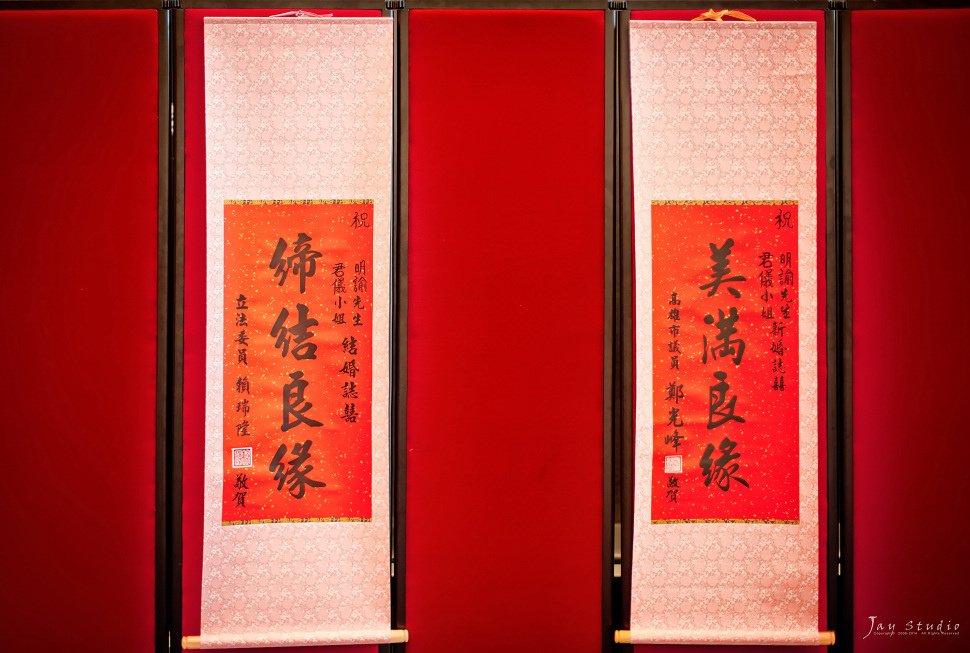 祝
明諭先生
君儀小姐
結婚誌囍
締結良緣
立法委員 賴瑞隆 敬賀
祝
明諭先生
君儀小姐
新婚誌囍
美滿良緣
高雄市議員 鄭光峰 敬賀
Jay Studio
Copyright 2006-2014 All Rights Reserved